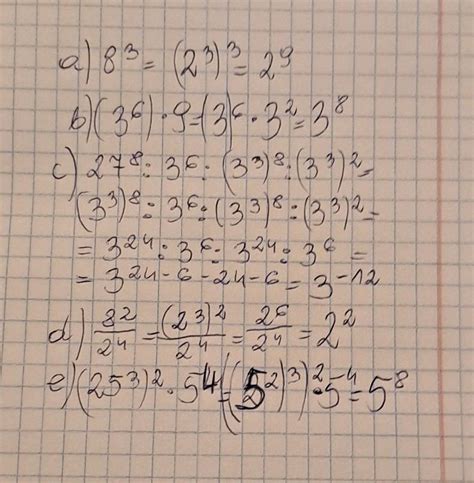 a) 8³ = (2³)³ = 2⁹
b) (3⁶) · 9 = (3)⁶ · 3² = 3⁸
c) 27⁸ : 3⁶ : (3³)⁸ : (3³)² =
(3³)⁸ : 3⁶ : (3³)⁸ : (3³)² =
= 3²⁴ : 3⁶ : 3²⁴ : 3⁶ =
= 3²⁴⁻⁶⁻²⁴⁻⁶ = 3⁻¹²
d) 8²/2⁴ = (2³)²/2⁴ = 2⁶/2⁴ = 2²
e) (25³)² · 5⁴ = ((5²)³)² · 5⁻⁴ = 5⁸